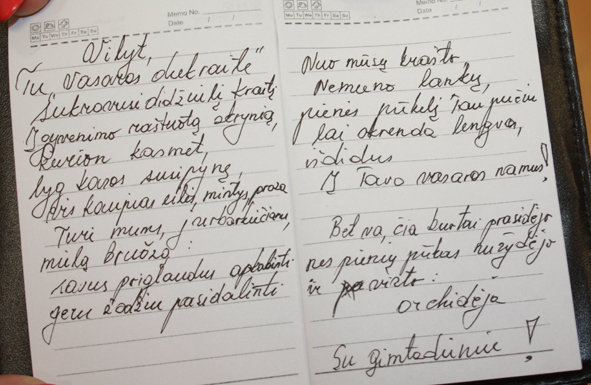 Memo No.
Date / /
Mo Tu We Th Fr Sa Su
Vilyt,
Tu „Vasaros dukraitė"
Sukrovusi didžiulį kraitį
Į gyvenimo raštuotą skrynią,
Kurion kasmet,
lyg kasos susipynę,
vis kaupiasi eilės, mintys, proza
Turi mums, jurbarkiečiams,
mielą bruožą:
savus priglaudus apkabinti
geru žodžiu pasidalinti
Memo No.
Mo Tu We Th Fr Sa Su
Date / /
Nuo mūsų krašto
Nemuno lankų,
pienės pūkelį Tau pučiu
lai skrenda lengvas,
išdidus
Į Tavo vasaros namus!
Bet va, čia burtai prasidėjo
nes pienių pūkas nužydėjo
ir virto:
orchidėja
Su gimtadieniu!